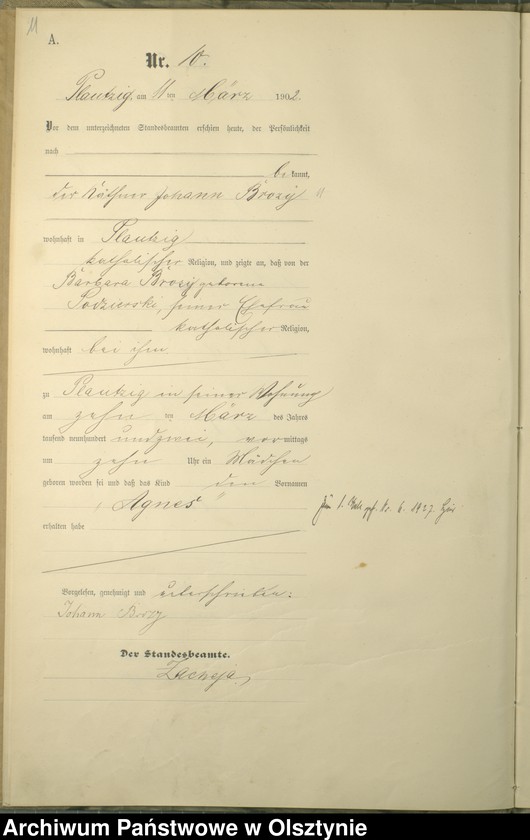 11
A.
Nr. 10.
Plautzig, am 11ten März 1902.
Vor dem unterzeichneten Standesbeamten erschien heute, der Persönlichkeit
nach
bekannt,
der Käthner Johann Brozy
wohnhaft in Plautzig
katholischer Religion, und zeigte an, daß von der
Barbara Brozy geborene
Podzierski, seiner Ehefrau
katholischer Religion,
wohnhaft bei ihm
zu Plautzig in seiner Wohnung
am zehn ten März des Jahres
tausend neunhundert undzwei, vormittags
um zehn Uhr ein Mädchen
geboren worden sei und daß das Kind den Vornamen
"Agnes"
erhalten habe
Nr. 6. 1927.
Vorgelesen, genehmigt und unterschrieben:
Johann Brozy
Der Standesbeamte.
Archiwum Państwowe w Olsztynie